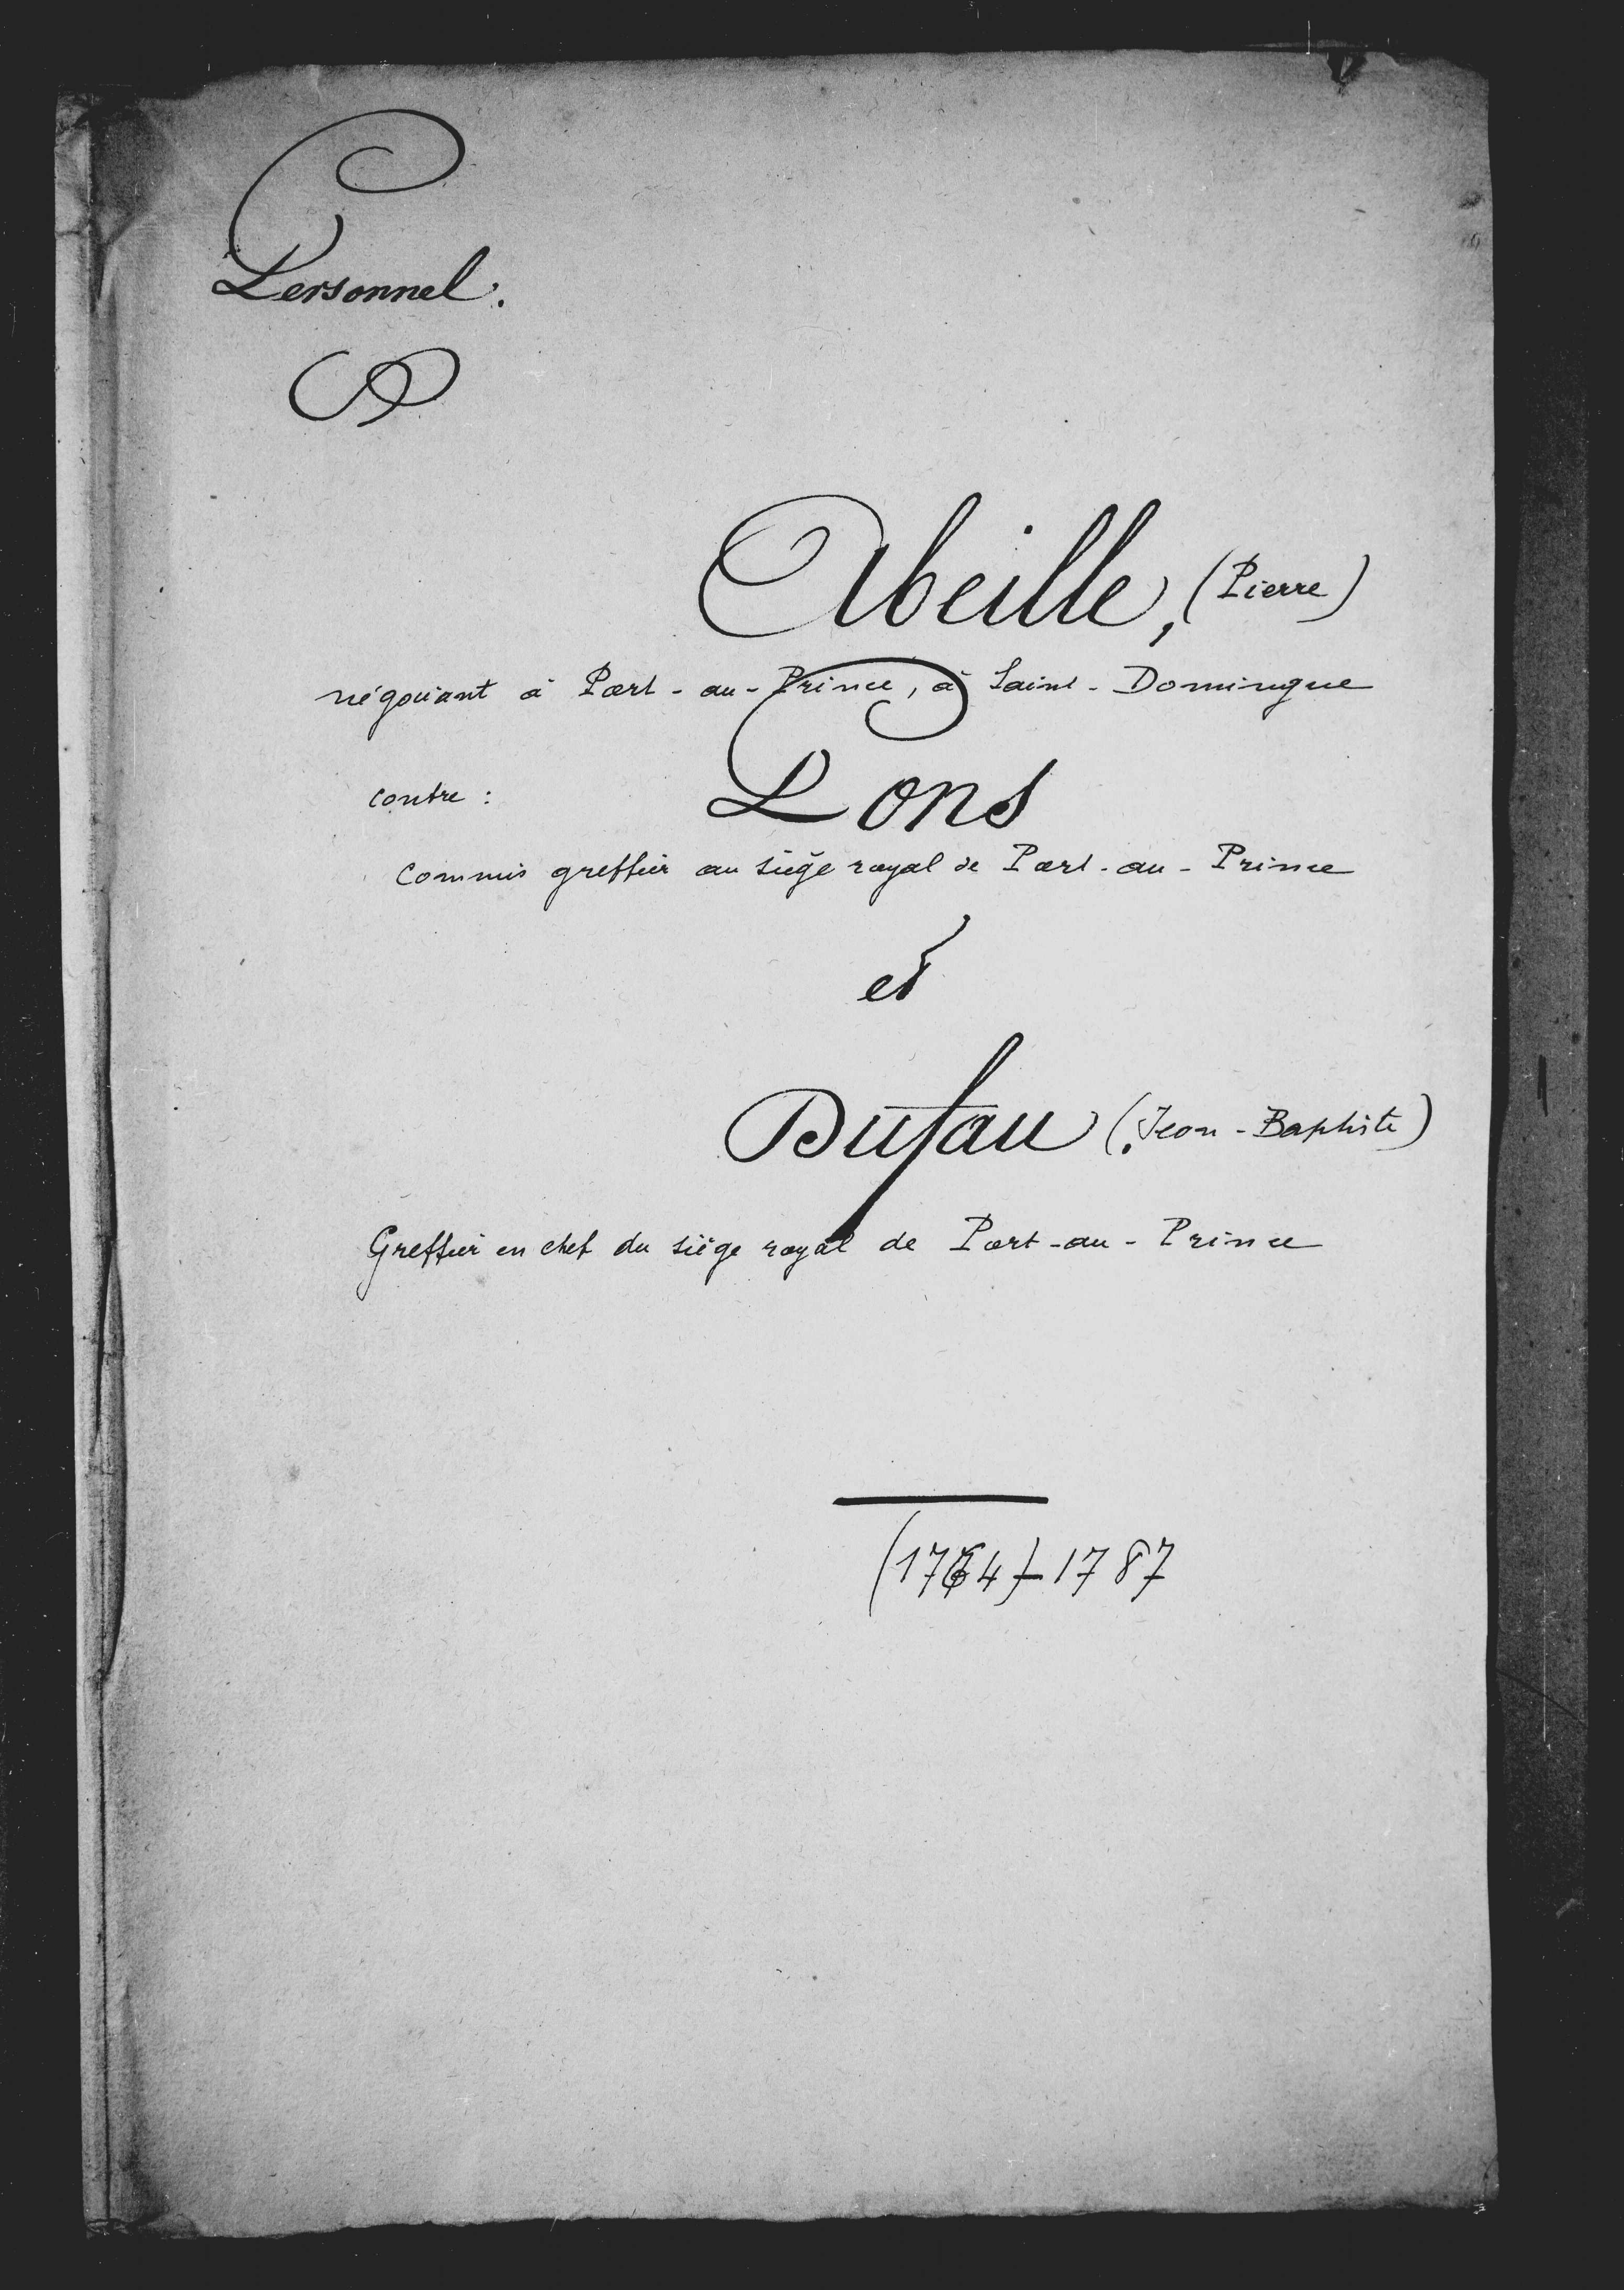 Personnel.
Abeille, (Pierre)
négociant à Port-au-Prince, à Saint-Domingue
contre : Pons
commis greffier au siège royal de Port-au-Prince
et
Dufau (Jean-Baptiste)
Greffier en chef du siège royal de Port-au-Prince
(1764)-1787